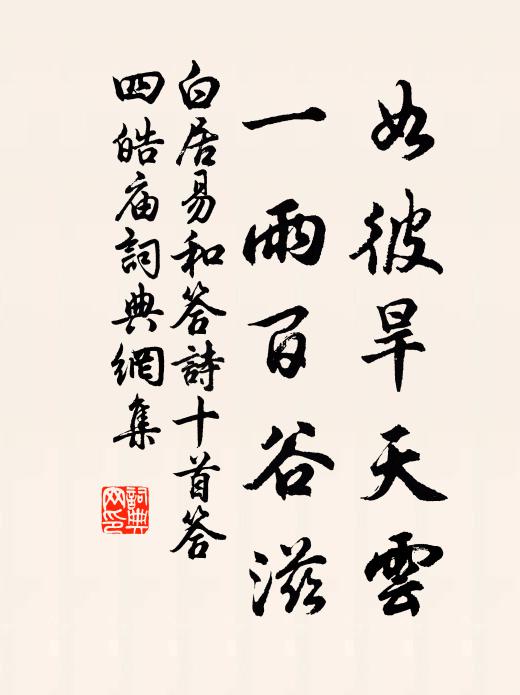 如彼旱天雲
一雨百谷滋
白居易和答詩十首答
四皓庙詞典網集
詞典
网印